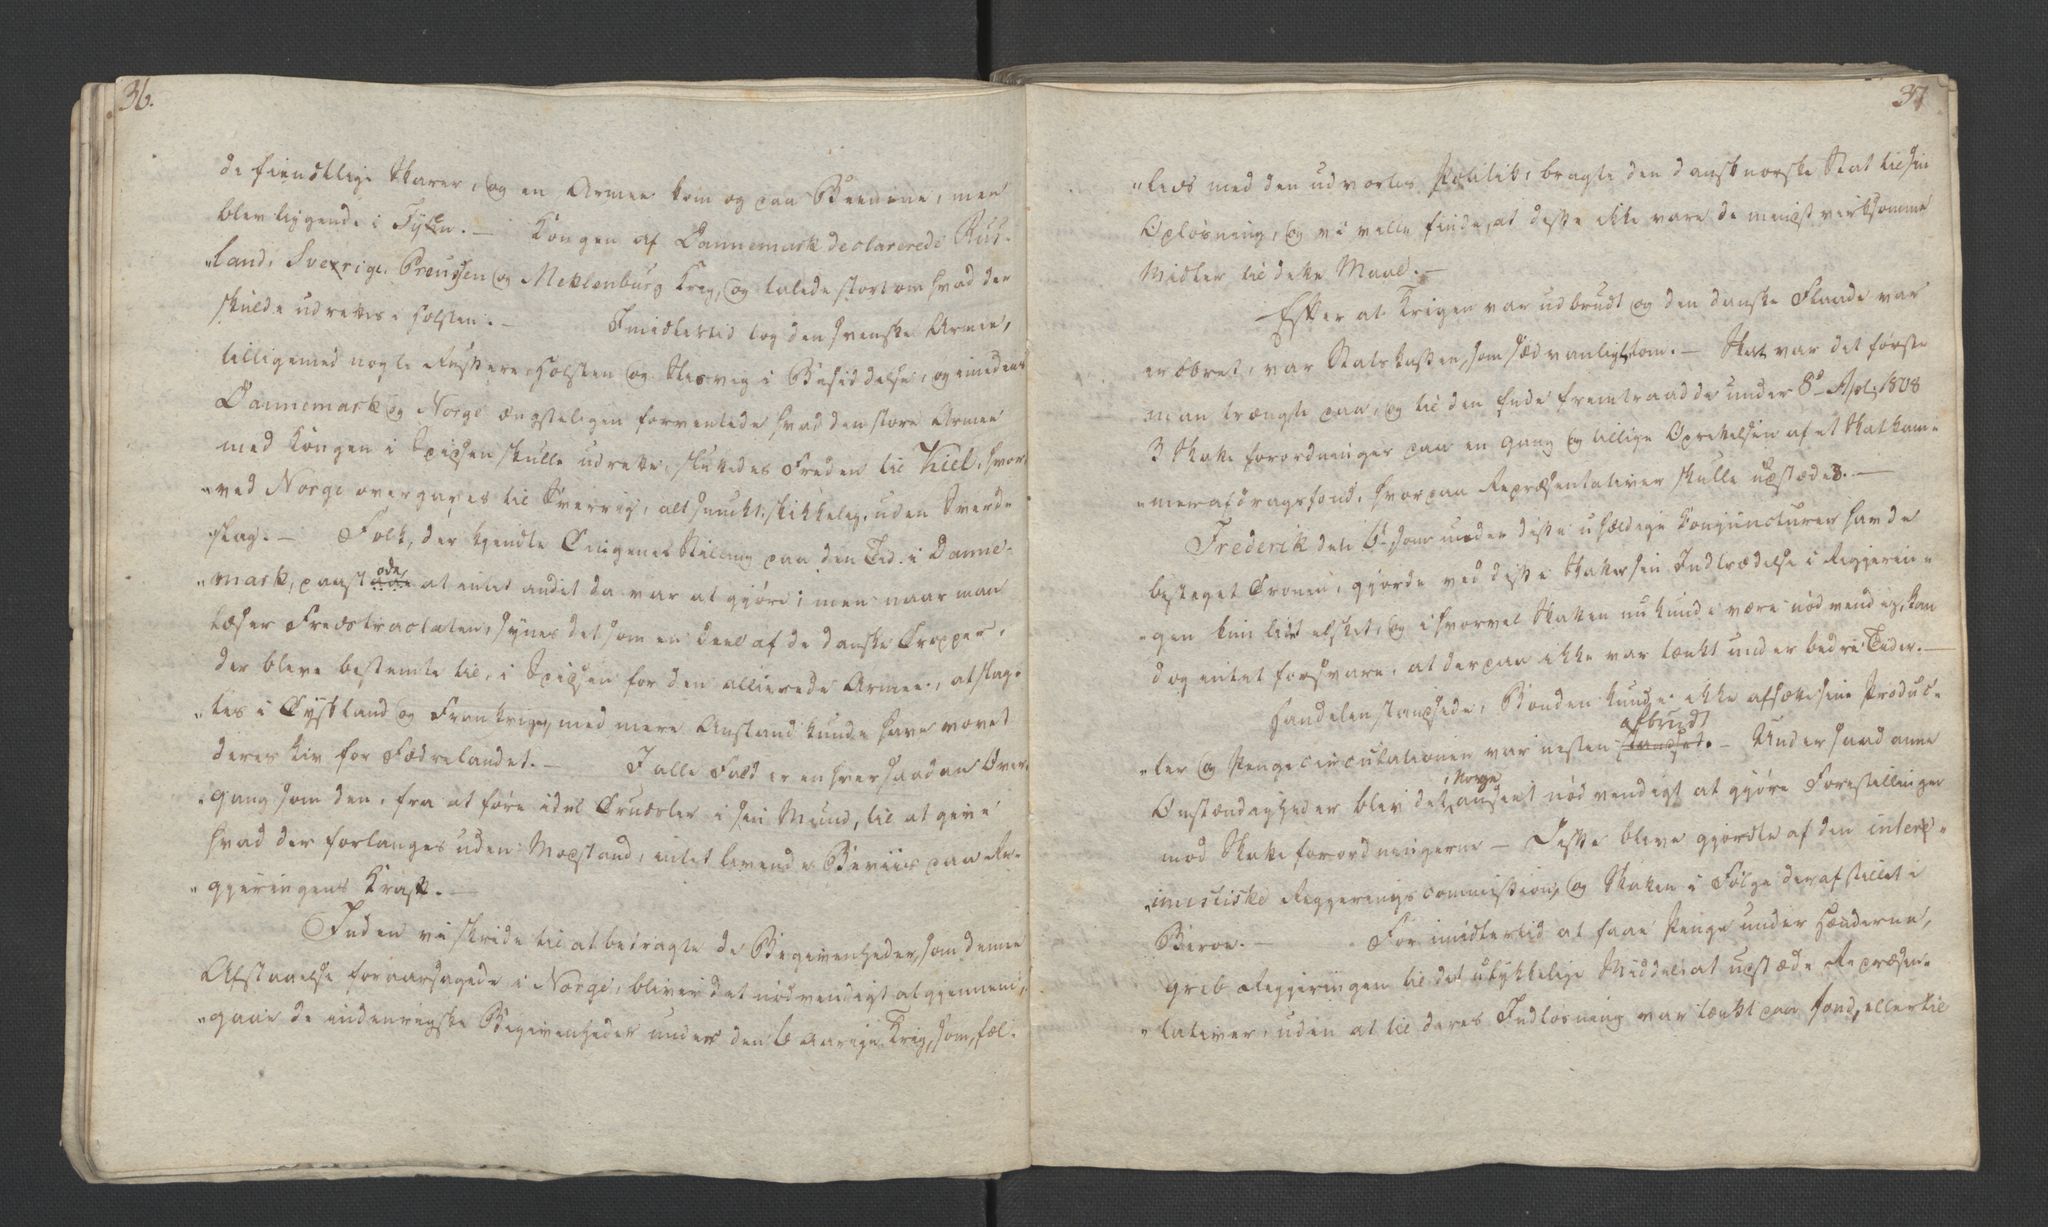 36.
de fiendtlige Skarer, og en Armee kom og paa Beenene, men
blev liggende i Fyen. — Kongen af Dannemark declarerede Rus-
"land, Sverrige, Preussen og Meklenburg Krig, og talede stort om hvad der
skulde udrettes i Holsten. — Imidlertid tog den svenske Armee,
tilligemed nogle Russere Holsten og Slesvig i Besiddelse, og imedens
Dannemark og Norge ængsteligen forventede hvad den store Armee
med Kongen i Spidsen skulle udrette, sluttedes Freden til Kiel, hvor-
"ved Norge overgaves til Sverrig, alt smukt skikkelig, uden Sverd-
slag. — Folk, der kjendte Tingenes Stilling paa den Tid i Danne-
"mark, paastode at intet andet da var at gjöre; men naar man
læser Fredstractaten, synes det som en Deel af de danske Tropper,
der bleve bestemte til, i Spidsen for den allierede Armee, at slag-
"tes i Tydskland og Frankrige, med mere Anstand kunde have vovet
deres Liv for Fædrelandet. — I alle Fald er enhver saadan Over-
"gang som den, fra at före idel Trudsler i sin Mund, til at give
hvad der forlanges uden Modstand, intet levende Beviis paa Re-
"gjeringens Kraft. —
Inden vi skride til at betragte de Begivenheder, som denne
Afstaaelse foraarsagede i Norge, bliver det nödvendigt at gjennem-
"gaae de indenrigske Begivenheder under den 6 aarige Krig, som, fæl-
37
"leds med den udvortes Politik, bragte den dansknorske Stat til sin
Oplösning, og vi ville finde, at disse ikke vare de mindst virksomme
Midler til dette Maal. —
Efter at Krigen var udbrudt og den danske Flaade var
erobret, var Statskassen, som sædvanligt tom. — Skat var det förste
man trængte paa, og til den Ende fremtraadde under 8d Apl. 1808
3 Skatteforordninger paa en gang og tillige Oprettelsen af et Skatkam-
"merafdragsfond, hvorpaa Repræsentativer skulle udstædes. —
Frederik den 6te som under disse uheldige Konjuncturer havde
besteget Tronen, gjorde ved disse Skatter sin Indtrædelse i Regjerin-
"gen kun lidet elsket, og ihvorvel Skatten nu kunde være nödvendig, kan
dog intet forsvare, at derpaa ikke var tænkt under bedre Tider. —
Handelen standsede, Bonden kunde ikke afsætte sine Produc-
"ter og Pengecirculationen var nesten afbrudt. — Under saadanne
Omstændigheder blev det i Norge anseet nödvendigt at gjöre Forestillinger
mod Skatteforordningerne — Disse bleve gjordte af den inter-
"imistiske Regjeringscommission, og Skatten i Fölge deraf stillet i
Beroe. — For imidlertid at faae Penge under Hænderne,
greb Regjeringen til det ulykkelige Middel at udstæde Repræsen-
"tativer, uden at til deres Indlösning var tænkt paa Fond, eller til